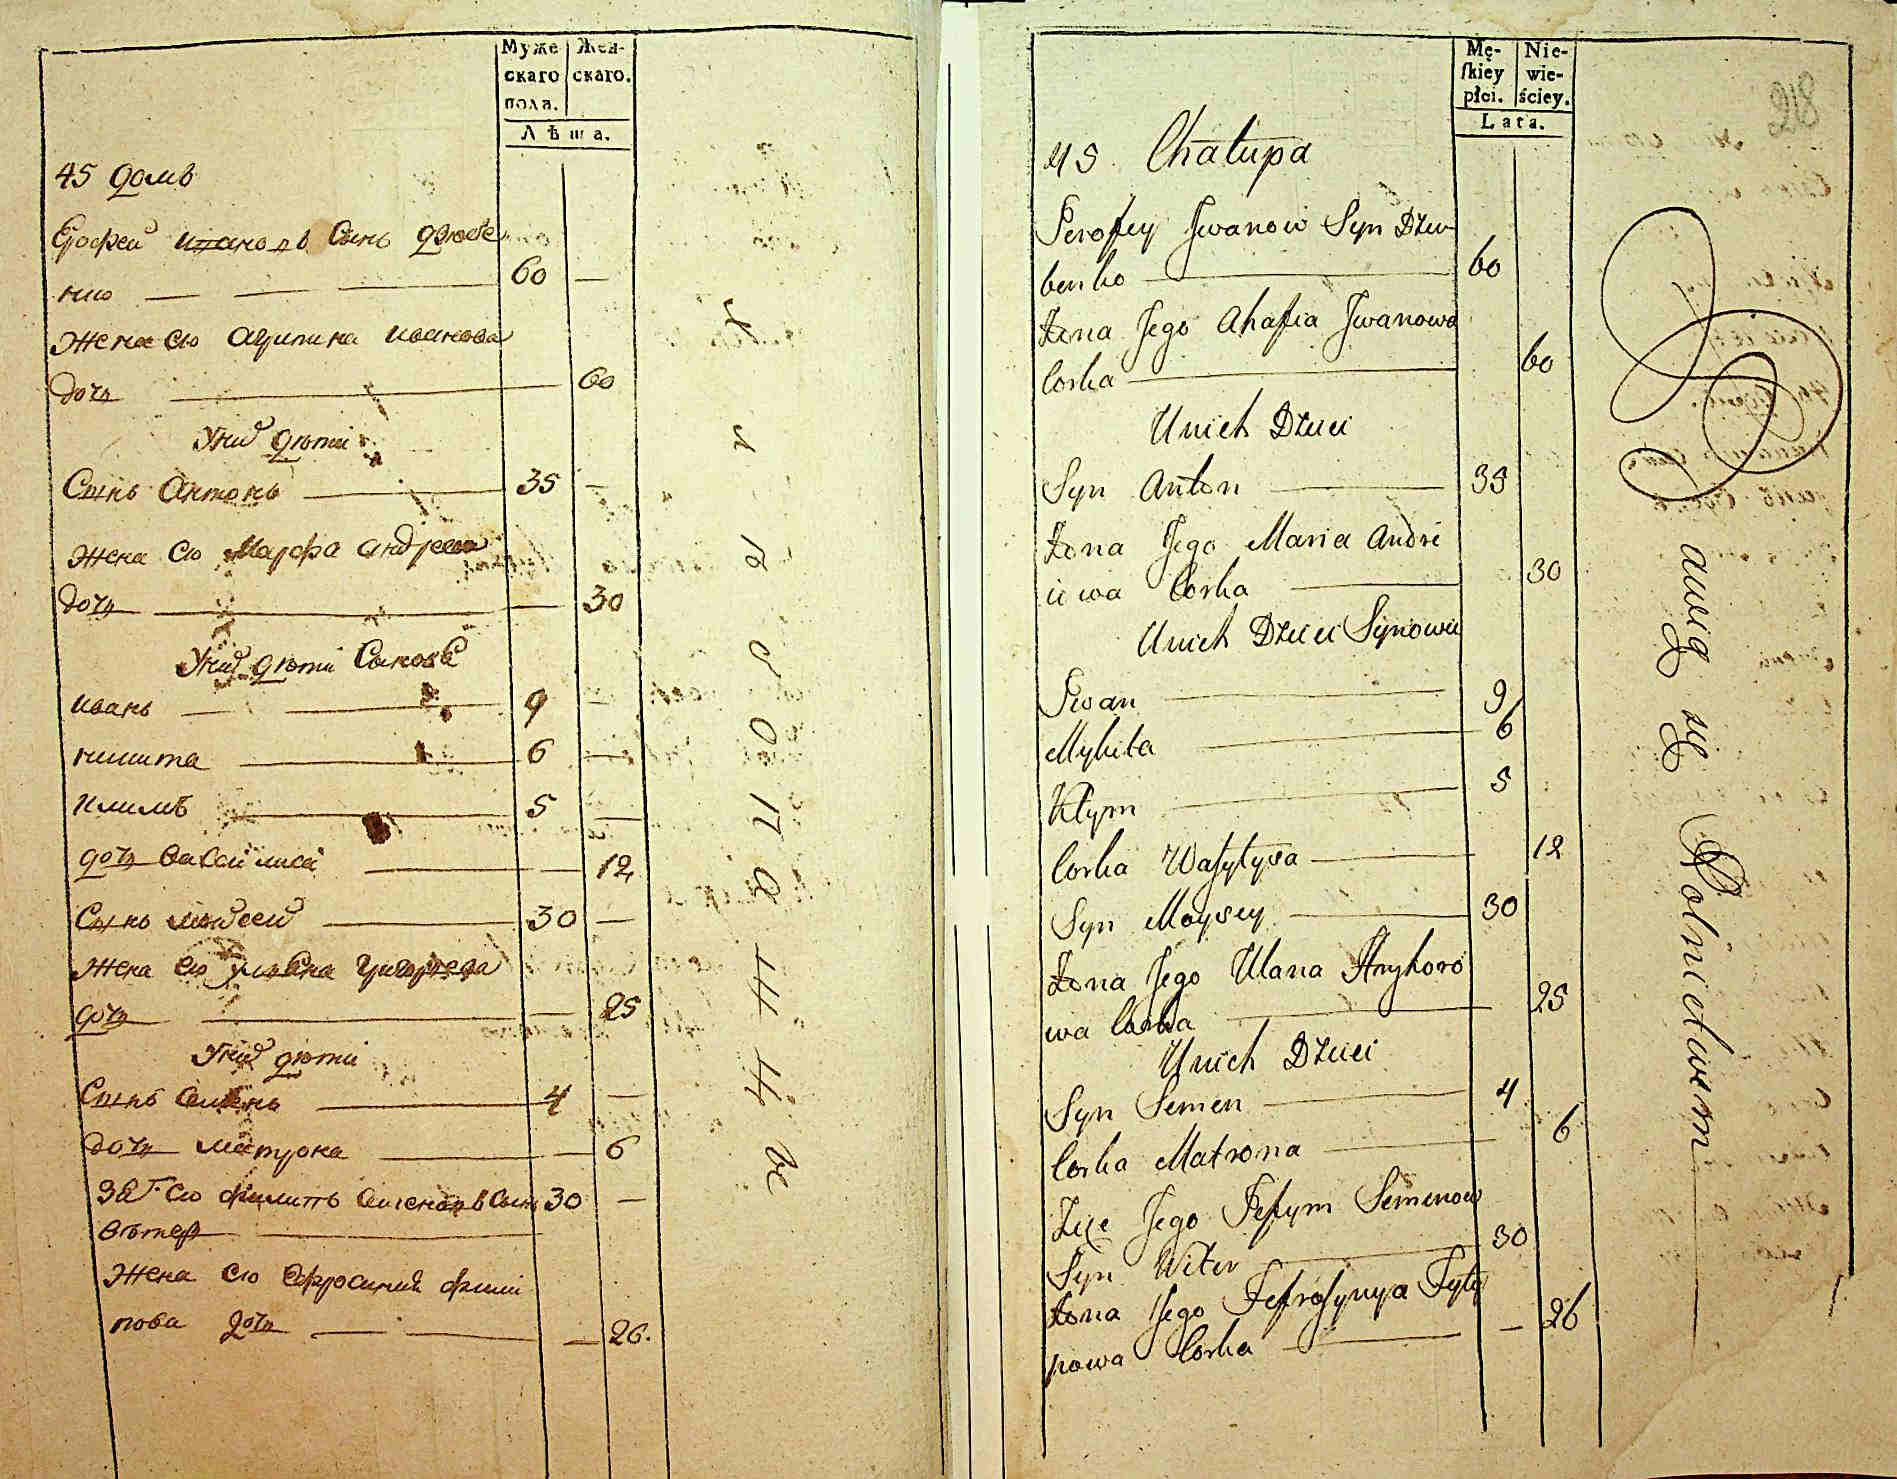 Муже
скаго
пола.
Жен-
скаго.
Лѣта.
45 домъ
Ерофей Ивановъ Сынъ Дзюбе
нко 60 —
Жена его Агрипина Иванова
дочь 60
У них дѣти
Сынъ Антонъ 35 —
Жена его Марфа Андреева
дочь 30
У них дѣти Сыновя
Иванъ 9 —
Никита 6 —
Климъ 5 —
дочь Василиса 12
Сынъ Моисей 30 —
Жена его Улияна Григорева
дочь 25
У них дѣти
Сынъ Семенъ 4 —
дочь Матрона 6
Зят его Филипъ Семеновъ Сынъ 30 —
Вѣтер
Жена его Ефросиния Фили
пова дочь 26.
Хлѣбопашц
Mę-
skiey
płci.
Nie-
wie-
ściey.
Lata.
218
45 Chałupa
Jerofey Jwanow Syn Dziu
benko 60
Żona Jego Ahafia Jwanowa
Corka 60
U nich Dzieci
Syn Anton 35
Żona Jego Maria Andri
iewa Corka 30
U nich Dzieci Synowie
Jwan 9
Mykita 6
Kłym 5
Corka Wasylysa 12
Syn Moysey 30
Żona Jego Ulana Hryhoro
wa Corka 25
U nich Dzieci
Syn Semen 4
Corka Matrona 6
Zięć Jego Pefym Semenow
Syn Witer 30
Żona Jego Jefrosynya Fyly
powa Corka — 26
Bawią się Rolnictwem